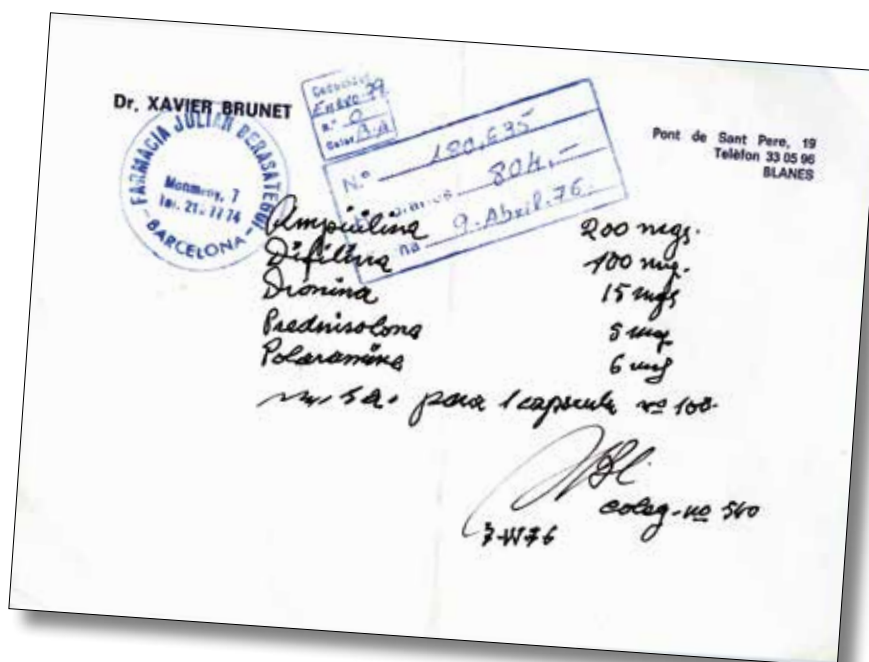 Dr. XAVIER BRUNET
Pont de Sant Pere, 19
Telèfon 33 05 96
BLANES
FARMACIA JULIAN BERASATEGUI
BARCELONA
ENERO-79
N.º 0
Color A.A
N.º 180,635
804,-
na 9. Abril. 76.
Ampicilina 200 mgs.
Difilina 100 mg.
Dionina 15 mgs
Prednisolona 5 mg
Polaramine 6 mg
s.a. para 1 capsula nº 100.
coleg. nº 540